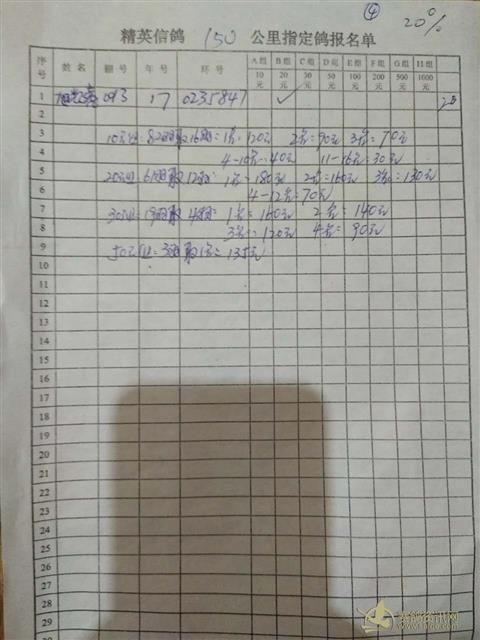 ④ 20%
精英信鸽 150 公里指定鸽报名单
序号 姓名 棚号 年号 环号 A组 10元 B组 20元 C组 30元 D组 50元 E组 100元 F组 200元 G组 500元 H组 1000元
1 093 17 0235847 ✓
2
3 10元组=82羽取16羽=1名=120元 2名=90元 3名=70元
4 4-10名=40元 11-16元=30元
5 20元组 61羽取12羽=1名=180元 2名=160元 3名=130元
6 4-12名=70元
7 30元组=19羽取4羽=1名=160元 2名=140元
8 3名=120元 4名=90元
9 50元组=3羽取1名=135元
10
11
12
13
14
15
16
17
18
19
20
21
22
23
24
25
26
27
28
29